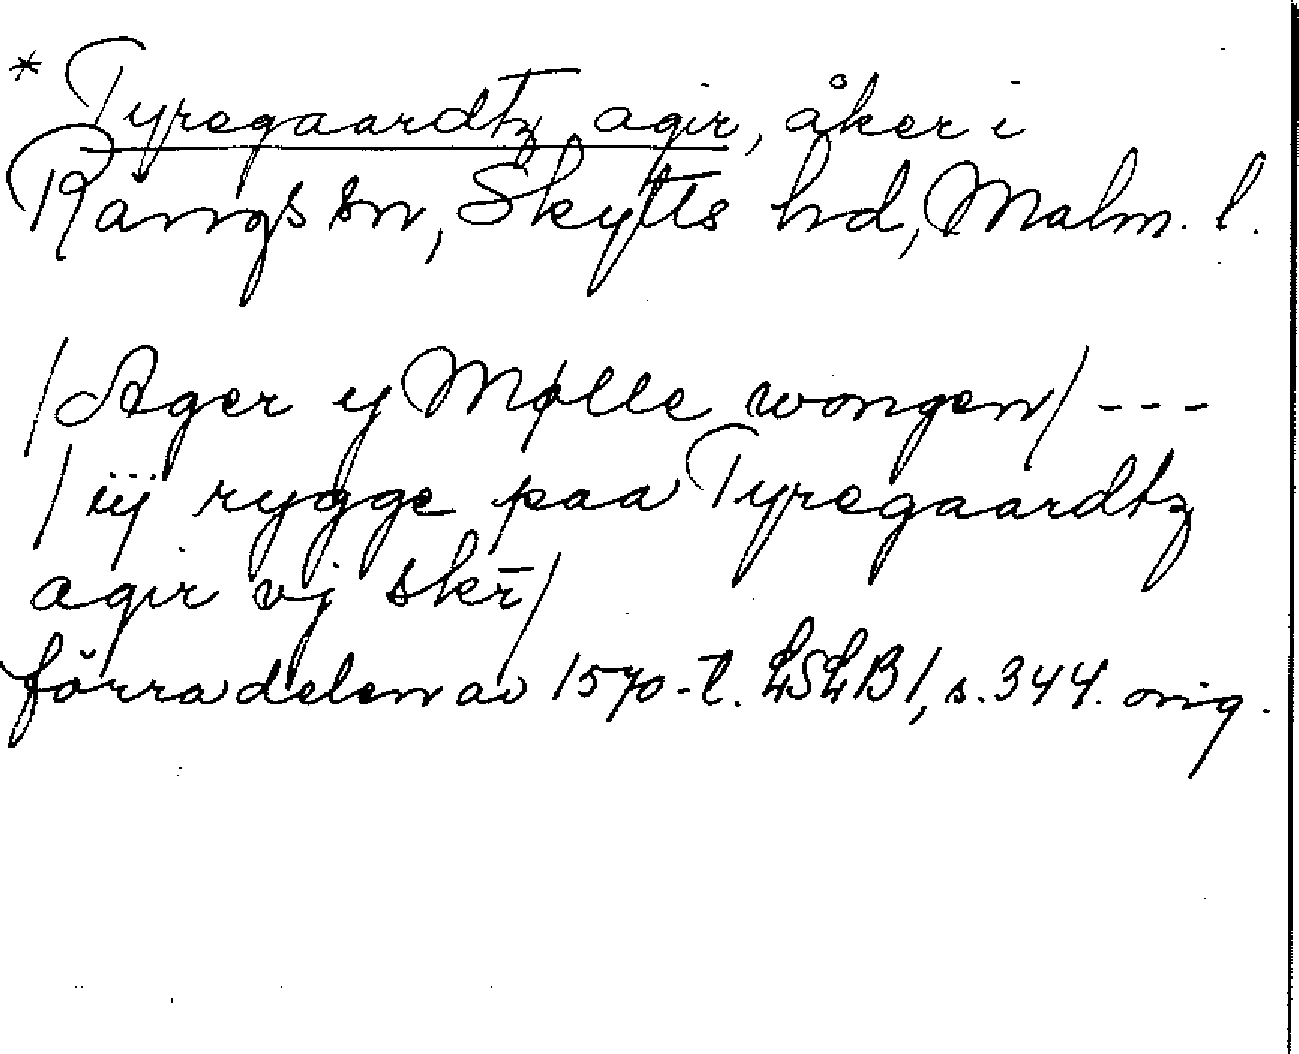 * Tyregaardtz agir, åker i
Rängs sn, Skytts hd, Malm. l.
/Ager y Mølle wongen/ ---
/iij rygge paa Tyregaardtz
agir vj skr̄/
förra delen av 1570-t. LSLB 1, s. 344. orig.